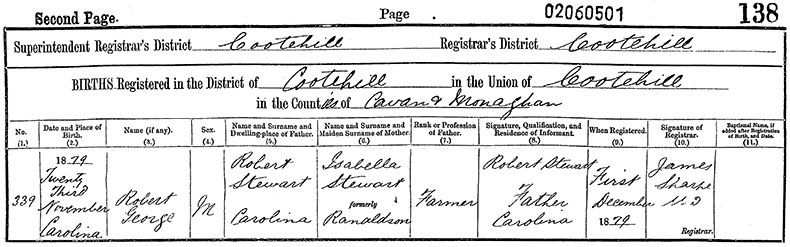 Second Page. Page 02060501 138
Superintendent Registrar's District Cootehill Registrar's District Cootehill
BIRTHS Registered in the District of Cootehill in the Union of Cootehill
in the Counties of Cavan & Monaghan
No. (1.)
Date and Place of Birth. (2.)
Name (if any). (3.)
Sex. (4.)
Name and Surname and Dwelling-place of Father. (5.)
Name and Surname and Maiden Surname of Mother. (6.)
Rank or Profession of Father. (7.)
Signature, Qualification, and Residence of Informant. (8.)
When Registered. (9.)
Signature of Registrar. (10.)
Baptismal Name, if added after Registration of Birth, and Date. (11.)
339
1879
Twenty
Third
November
Carolina
Robert
George
M
Robert
Stewart
Carolina
Isabella
Stewart
formerly
Ranaldson
Farmer
Robert Stewart
Father
Carolina
First
December
1879
James
Sharpe
M D
Registrar.